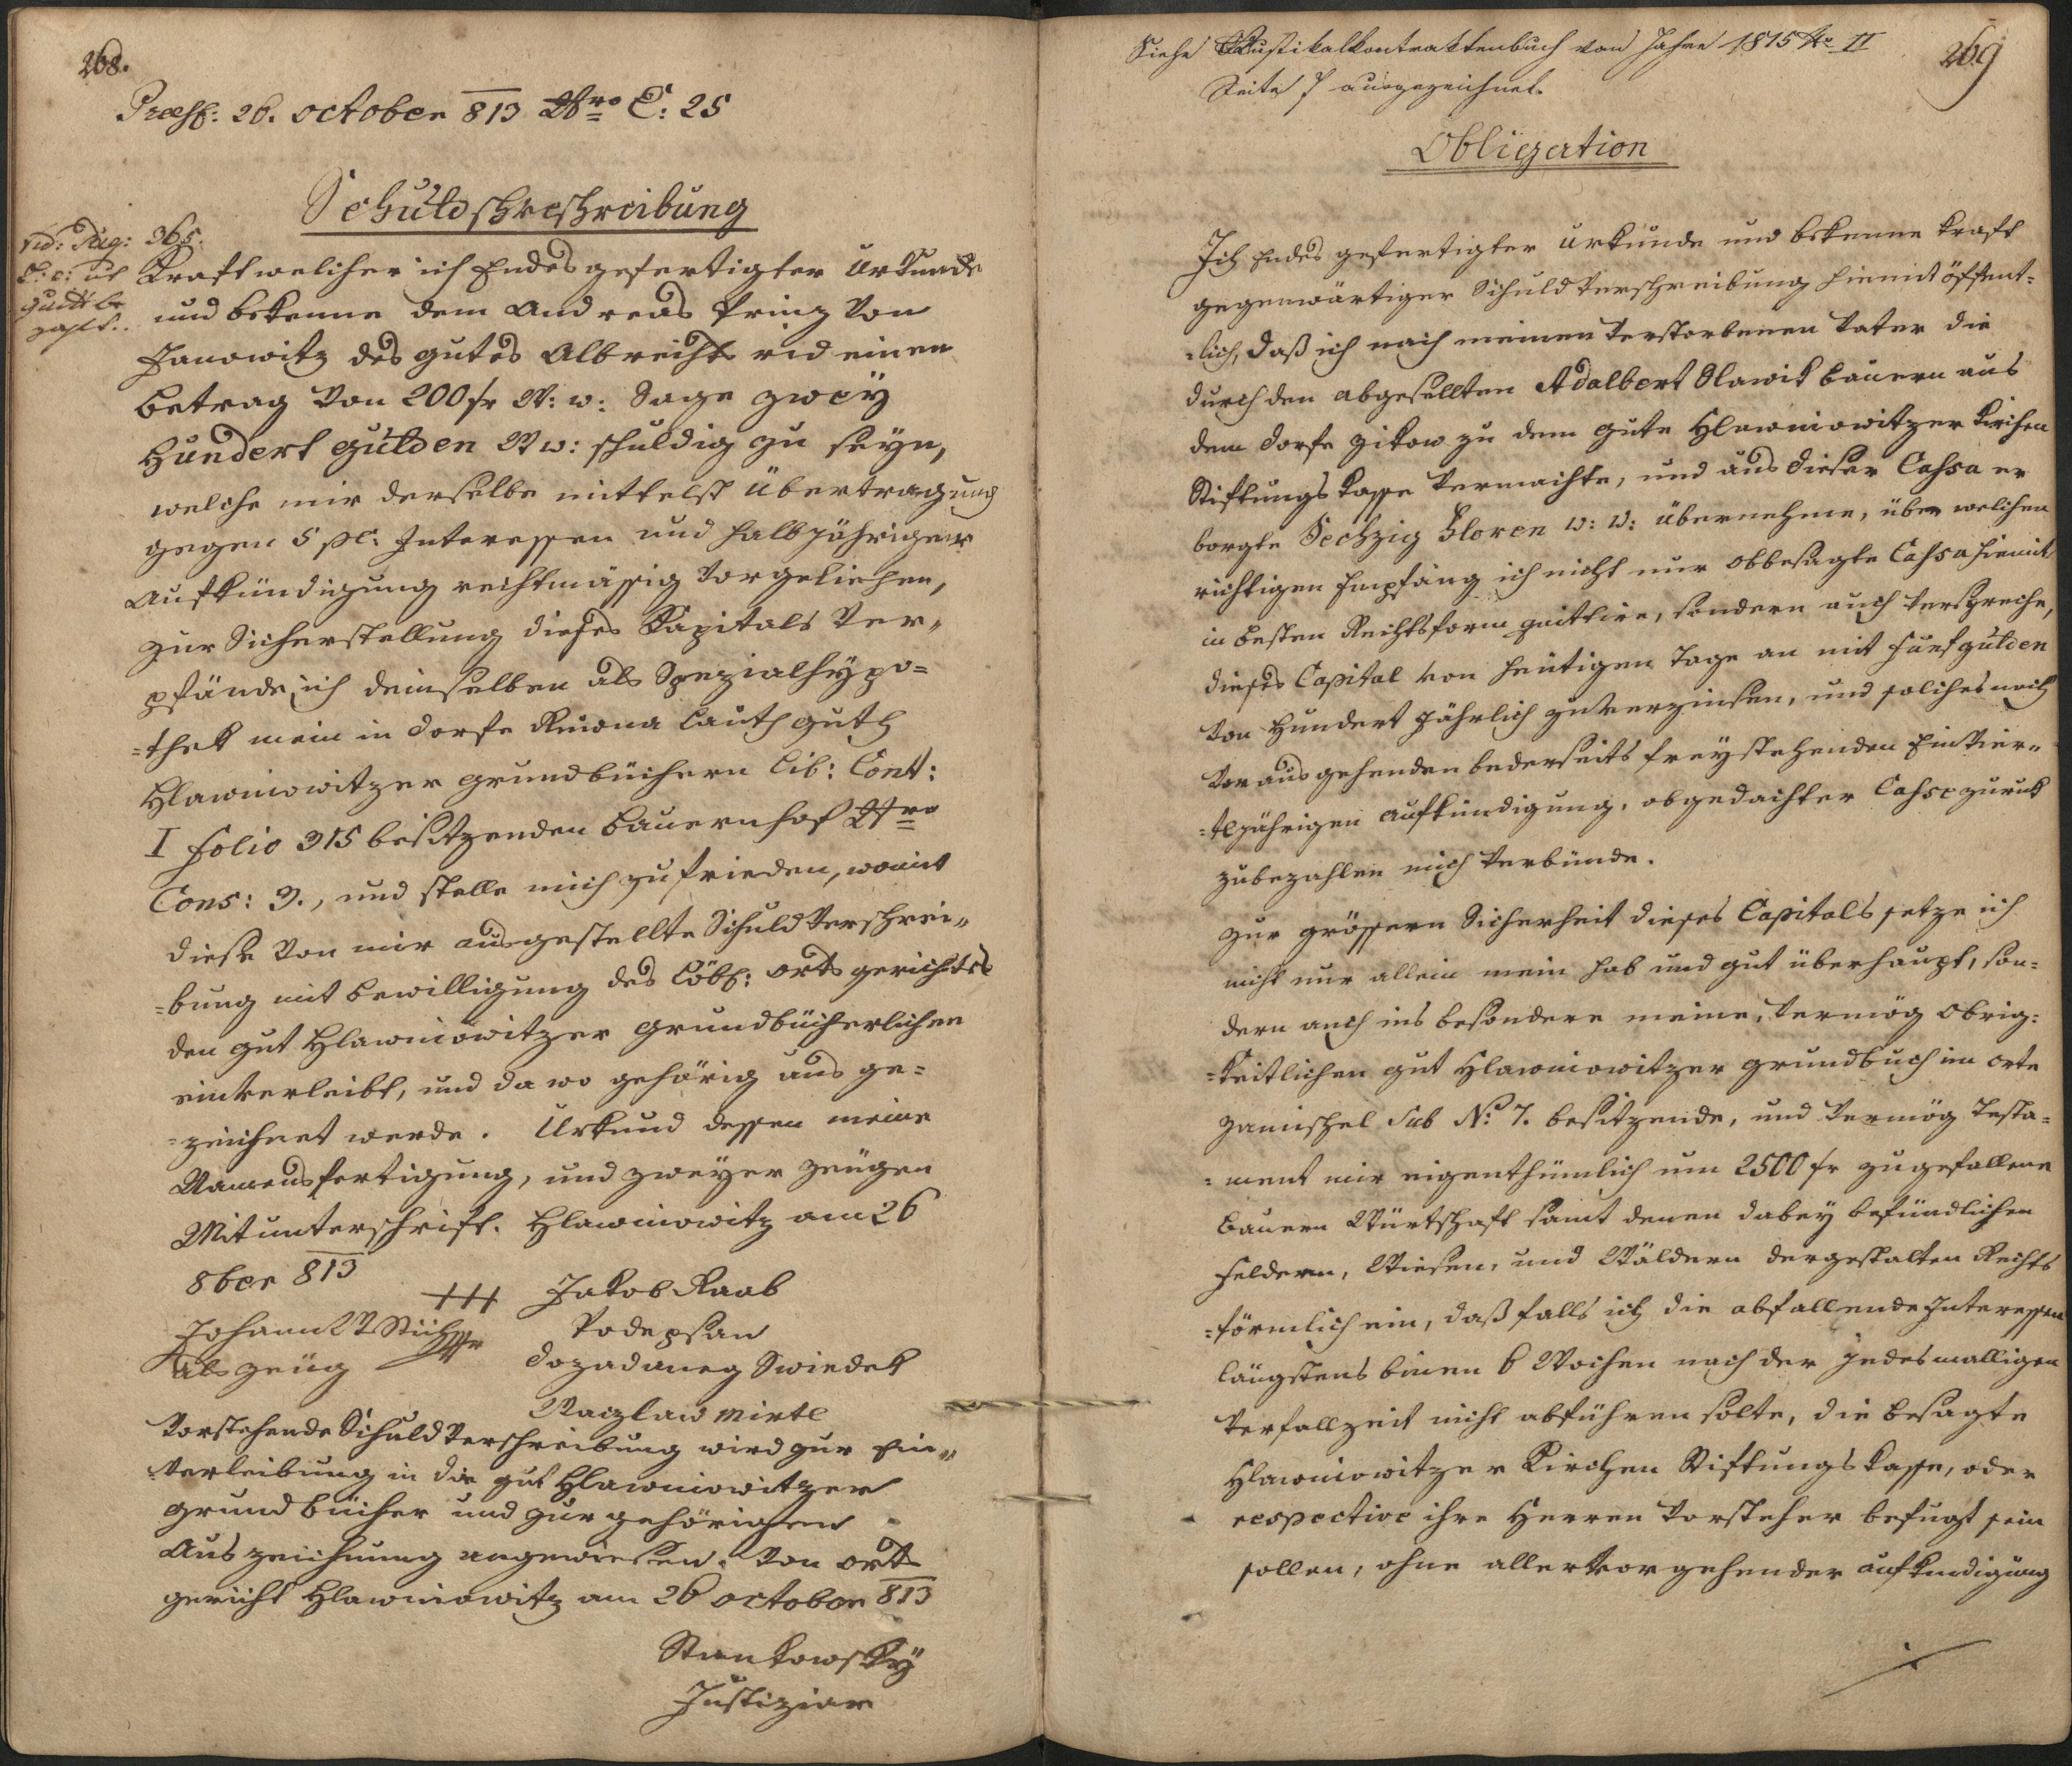 268.
Præs: 26. october 813 Nro E: 25
Schuldverschreibung
vid: Pag: 365.
Kraft welcher ich Endesgefertigter Urkunde
und bekenne dem Andreas Prinz von
Janowitz des gutes Albrechts rid einen
betrag von 200 fr W: w: Sage zweÿ
Hundert gulden W w: schuldig zu seÿn,
welche mir derselbe mittelst Übertragung
gegen 5 pC: Interessen und halbjähriger
Aufkündigung rechtmässig vorgeliehen,
zur Sicherstellung dieses Kapitals Ver„
pfände ich demselben als Spezialhypo=
=thek mein in Dorfe lauth guth
Hlawniowitzer grundbüchern Lib: Cont:
I folio 315 besitzenden bauernhof Nro
Cons: 3., und stelle mich zufrieden, womit
diese von mir ausgestellte Schuldverschrei„
=bung mit bewilligung des Löbl: orts gerichtes
den gut Hlawniowitzer grundbücherlichen
einverleibt, und da wo gehörig aus ge=
=zeichnet werde. Urkund dessen meine
Namensfertigung, und zweÿer zeugen
Mitunterschrift. Hlawniowitz am 26
8ber 813
+++ Jakob Raab
Johann
als zeüg
Podepsan
dozadaneg Swiedek
Wazlaw Mirtl
Vorstehende Schuldverschreibung wird zur Ein„
verleibung in die gut Hlawniowitzer
grundbücher und zur gehörigen
Auszeichnung angewiesen. Von orts
gericht Hlawniowitz am 26 october 813
Stankowskÿ
Justiziar
Siehe Rustikalkontraktenbuch von Jahre 1815 No II
Seite 7 ausgezeichnet.
269
Obligation
Ich Endes gefertigter Urkunde und bekenne kraft
gegenwärtiger Schuldverschreibung hiemit öffent=
=lich, daß ich nach meinen verstorbenen Vater die
durch den abgesellten Adalbert Slawik bauern aus
dem Dorfe Zikow zu dem gute Hlawniowitzer Kirchen
Stiftungs kasse vermachte, und aus dieser Cassa er
borgte Sechzig Floren W: W: übernehme, über welchen
richtigen Empfang ich nicht nur obbesagte Cassa hiemit
in besten Rechtsform quittire, sondern auch verspreche,
dieses Capital von heutigen Tage an mit fünf gulden
von Hundert jährlich zu verzinsen, und solches nach
vorausgehenden bederseits freÿstehenden Einvier„
=tljährigen aufkündigung, obgedachter Casse zuruk
zubezahlen mich verbünde.
Zur grössern Sicherheit dieses Capitals setze ich
nicht nur allein mein hab und gut überhaupt, son=
dern auch ins besondere meine, vermög obrig=
=keitlichen gut Hlawniowitzer grundbuch im orte
Zamischel Sub No: 7. besitzende, und vermög Testa=
=ment mir eigenthümlich um 2500 fr zugefallene
bauern Würtschaft samt denen dabey befündlichen
Feldern, Wiesen, und Wäldern dergestalten Rechts
=förmlich ein, daß falls ich die abfallende Interessen
längstens binen 6 Wochen nach der jedesmalligen
Verfallzeit nicht abführen solte, die besagte
Hlawniowitzer Kirchen Stiftungs kasse, oder
respective ihre Herren Vorsteher befugt sein
sollen, ohne aller vorgehender aufkündigung